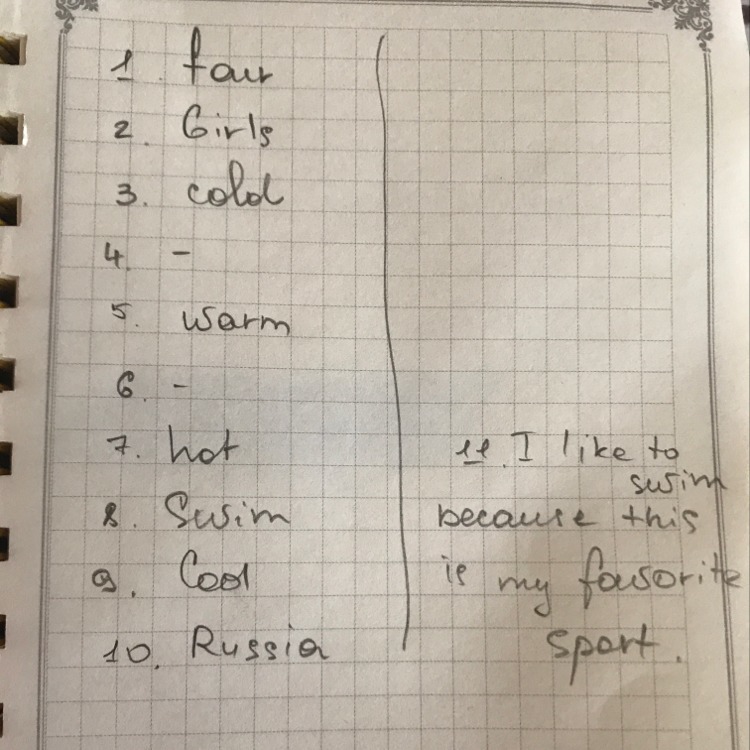 1. four
2. Girls
3. cold
4. -
5. warm
6. -
7. hot
8. Swim
9. Cool
10. Russia
11. I like to
swim
because this
is my fovsorite
sport.